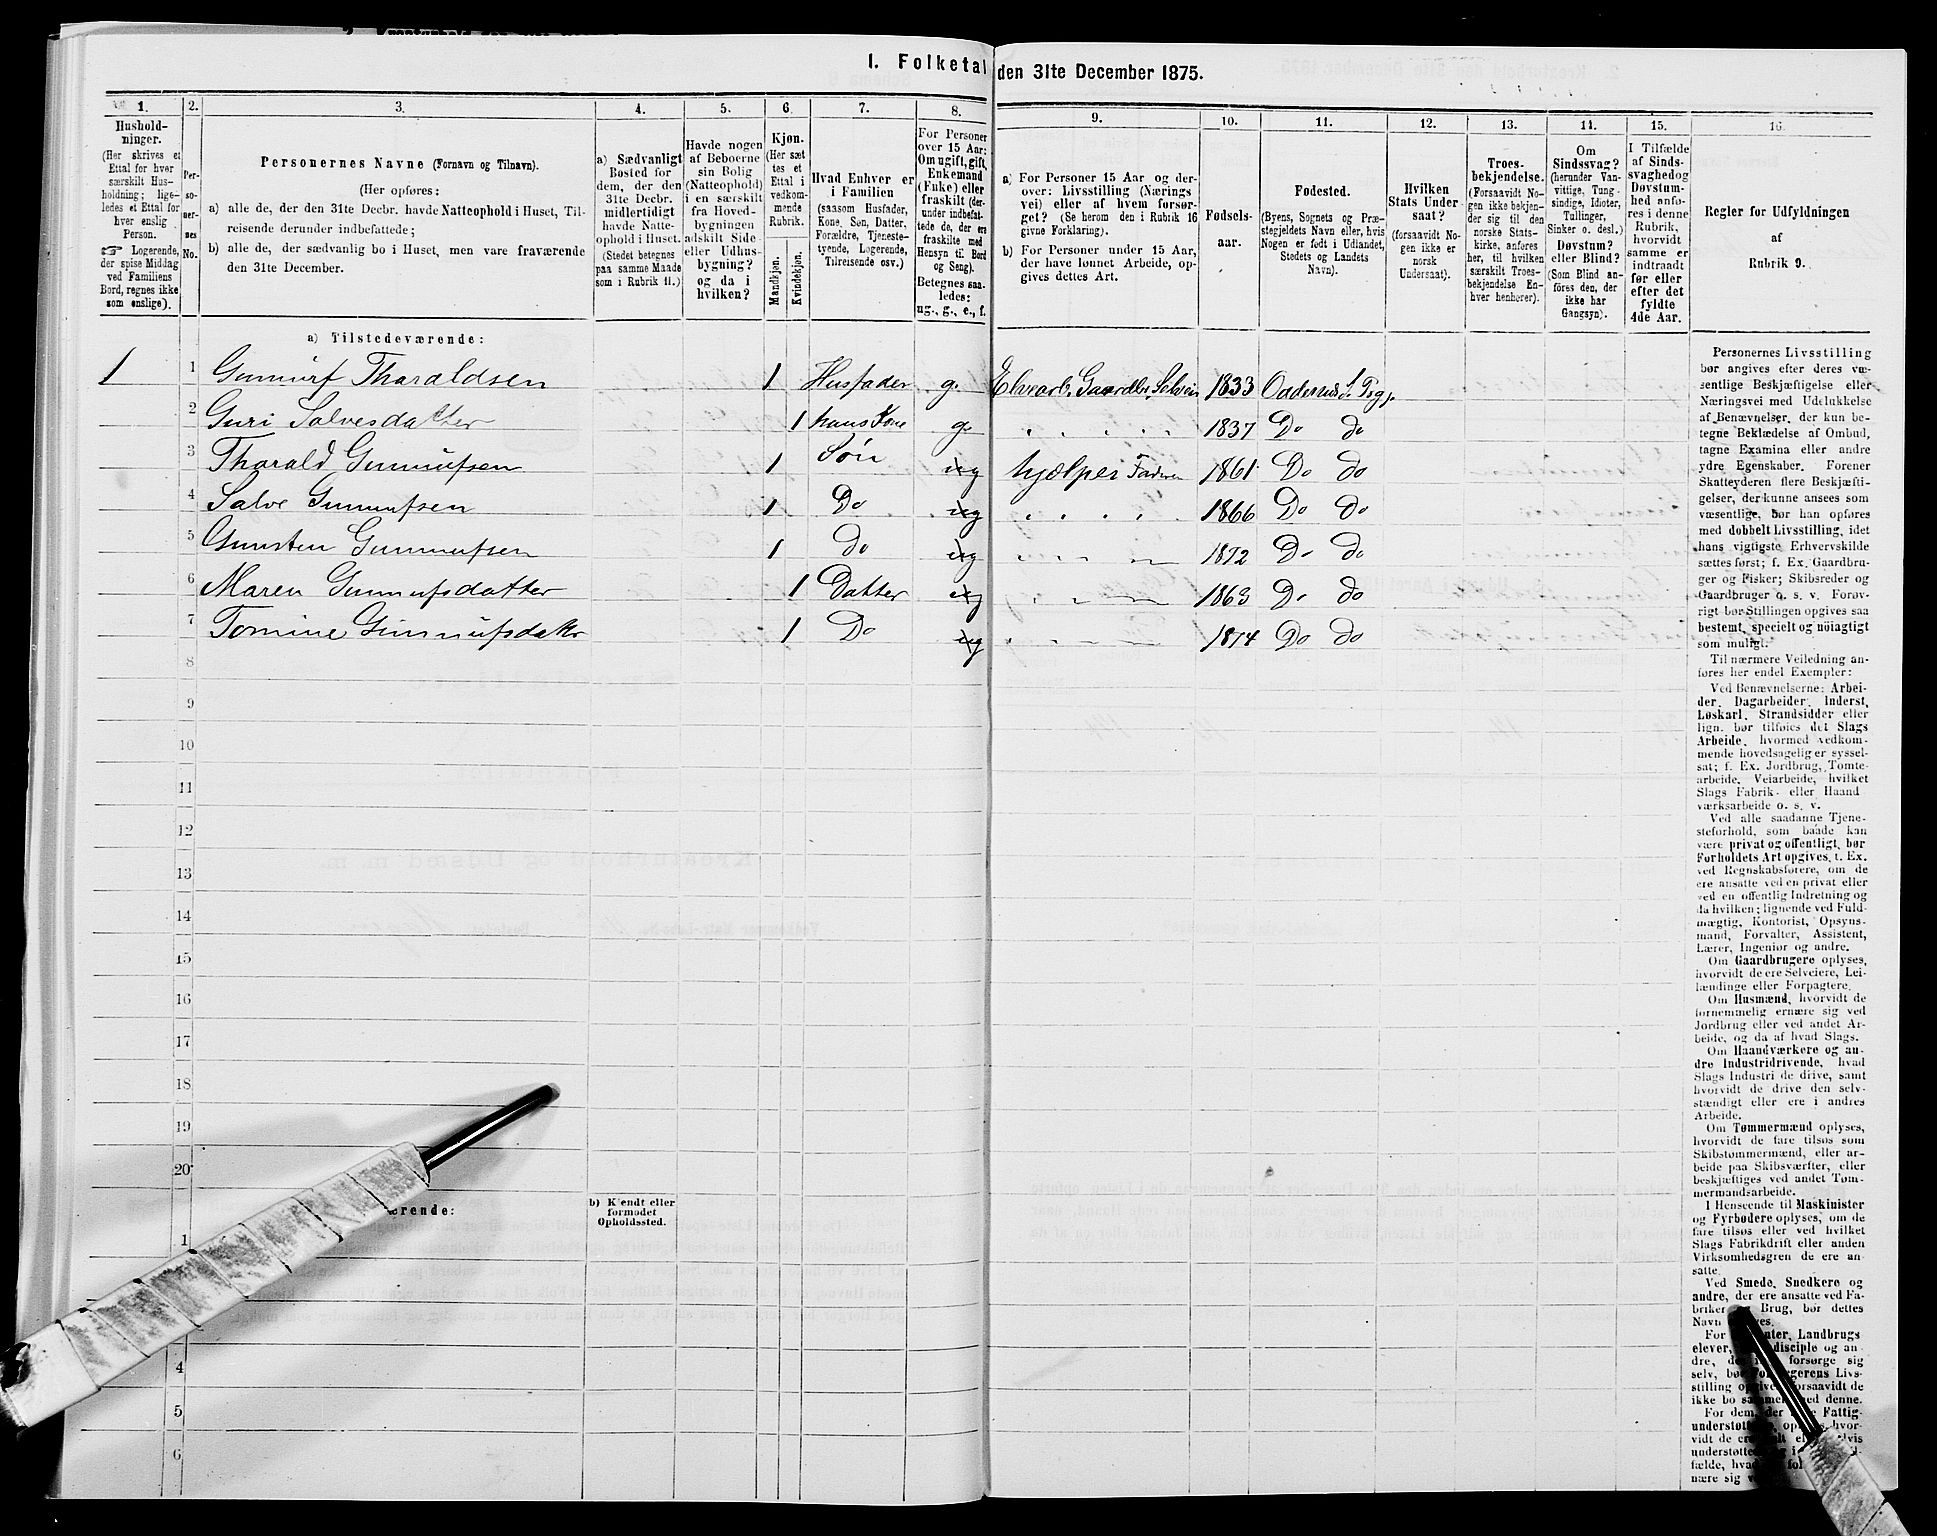 1. Folketal den 31te December 1875.
1.
Hushold-
ninger.
(Her skrives et
Ettal for hver
særskilt Hus-
holdning; lige-
ledes et Ettal for
hver enslig
Person.
☞ Logerende,
der spise Middag
ved Familiens
Bord, regnes ikke
som enslige).
2.
Per-
so-
ner-
nes
No.
3.
Personernes Navne (Fornavn og Tilnavn).
(Her opføres:
a) alle de, der den 31te Decbr. havde Natteophold i Huset, Til-
reisende derunder indbefattede;
b) alle de, der sædvanlig bo i Huset, men vare fraværende
den 31te December.
4.
a) Sædvanligt
Bosted for
dem, der den
31te Decbr.
midlertidigt
havde Natte-
ophold i Huset.
(Stedet betegnes
paa samme Maade
som i Rubrik 11.)
5.
Havde nogen
af Beboerne
sin Bolig
(Natteophold)
i en særskilt
fra Hoved-
bygningen
adskilt Side-
eller Udhus-
bygning?
og da i
hvilken?
6.
Kjøn.
(Her sæt-
tes et
Ettal i
vedkom-
mende
Rubrik.
Mandkjøn.
Kvindekjøn.
7.
Hvad Enhver er
i Familien
(saasom Husfader,
Kone, Søn, Datter,
Forældre, Tjeneste-
tyende, Logerende,
Tilreisende osv.)
8.
For Personer
over 15 Aar:
Om ugift, gift,
Enkemand
(Enke) eller
fraskilt (der-
under indbefat-
tede de, der ere
fraskilte med
Hensyn til Bord
og Seng).
Betegnes saa-
ledes:
ug., g., e., f.
9.
a) For Personer 15 Aar og der-
over: Livsstilling (Nærings-
vei) eller af hvem forsør-
get? (Se herom den i Rubrik 16
givne Forklaring).
b) For Personer under 15 Aar,
der have lønnet Arbeide, op-
gives dettes Art.
10.
Fødsels-
aar.
11.
Fødested.
(Byens, Sognets og Præ-
stegjeldets Navn eller, hvis
Nogen er født i Udlandet,
Stedets og Landets
Navn).
12.
Hvilken
Stats Under-
saat?
(forsaavidt No-
gen ikke er
norsk
Undersaat).
13.
Troes-
bekjendelse.
(Forsaavidt No-
gen ikke bekjen-
der sig til den
norske Stats-
kirke, anføres
her, til hvilken
særskilt Troes-
bekjendelse En-
hver henhører).
14.
Om
Sindssvag?
(herunder Van-
vittige, Tung-
sindige, Idioter,
Tullinger,
Sinker o. desl.)
Døvstum?
eller Blind?
(Som Blind an-
føres den, der
ikke har
Gangsyn).
15.
I Tilfælde
af Sinds-
svaghed og
Døvstum-
hed anfø-
res i denne
Rubrik,
hvorvidt
samme er
indtraadt
før eller
efter det
fyldte
4de Aar.
16.
Regler for Udfyldningen
af
Rubrik 9.
a) Tilstedeværende:
1 1 Gunnuf Tharaldsen 1 Husfader g. Gaardbr. Selveier 1833
2 Guri Salvesdatter 1 hans Kone g. " " " " 1837 Do do
3 Tharald Gunnufsen 1 Søn ug hjælper Faderen 1861 Do do
4 Salve Gunnufsen 1 Do ug " " " " 1866 Do do
5 Gunsten Gunnufsen 1 do ug " " " " 1872 Do do
6 Maren Gunnufsdatter 1 Datter ug " " " " 1863 Do do
7 Tomine Gunnufsdatter 1 Do ug " " " " 1874 Do do
8
9
10
11
12
13
14
15
16
17
18
19
20
ærende:
b) Kjendt eller
formodet
Opholdssted.
1
4
5
6
Personernes Livsstilling
bør angives efter deres væ-
sentlige Beskjæftigelse eller
Næringsvei med Udelukkelse
af Benævnelser, der kun be-
tegne Beklædelse af Ombud,
tagne Examina eller andre
ydre Egenskaber. Forener
Skatteyderen flere Beskjæfti-
gelser, der kunne ansees som
væsentlige, bør han opføres
med dobbelt Livsstilling, idet
hans vigtigste Erhvervskilde
sættes først; f. Ex. Gaardbru-
ger og Fisker; Skibsreder og
Gaardbruger o. s. v. Forøv-
rigt bør Stillingen opgives saa
bestemt, specielt og nöiagtigt
som muligt.
Til nærmere Veiledning an-
føres her endel Exempler:
Ved Benævnelserne: Arbei-
der, Dagarbeider, Inderst,
Løskarl, Strandsidder eller
lign. bør tilføies det Slags
Arbeide, hvormed vedkom-
mende hovedsagelig er syssel-
sat; f. Ex. Jordbrug, Tomte-
arbeide, Veiarbeide, hvilket
Slags Fabrik- eller Haand-
værksarbeide o. s. v.
Ved alle saadanne Tjene-
steforhold, som baade kan
være privat og offentligt, bør
Forholdets Art opgives, t. Ex.
ved Regnskabsførere, om de
ere ansatte ved en privat eller
ved en offentlig Indretning og
da hvilken; lignende ved Fuld-
mægtig, Kontorist, Opsyns-
mand, Forvalter, Assistent,
Lærer, Ingeniør og andre.
Om Gaardbrugere oplyses,
hvorvidt de ere Selveiere, Lei-
lændinge eller Forpagtere.
Om Husmænd, hvorvidt de
fornemmelig ernære sig ved
Jordbrug eller ved andet Ar-
beide, og da af hvad Slags.
Om Haandværkere og an-
dre Industridrivende, hvad
Slags Industri de drive, samt
hvorvidt de drive den selv-
stændigt eller ere i andres
Arbeide.
Om Tømmermænd oplyses,
hvorvidt de fare tilsøs som
Skibstømmermænd, eller ar-
beide paa Skibsværfter, eller
beskjæftiges ved andet Tøm-
mermandsarbeide.
I Henseende til Maskinister
og Fyrbødere oplyses, om de
fare tilsøs eller ved hvilket
Slags Fabrikdrift eller anden
Virksomhedsgren de ere an-
satte.
Ved Smede, Snedkere og
andre, der ere ansatte ved Fa-
briker Brug, bør dettes
Navn
For Landbrugs
elever, disciple og an-
dre, forsørge sig
selv, Livs-
stilling forsaavidt de
ikke bo med denne.
For dem, der Fattig-
understøtte hvor-
vidt de
understøtte
fælde, hvad
nære sig